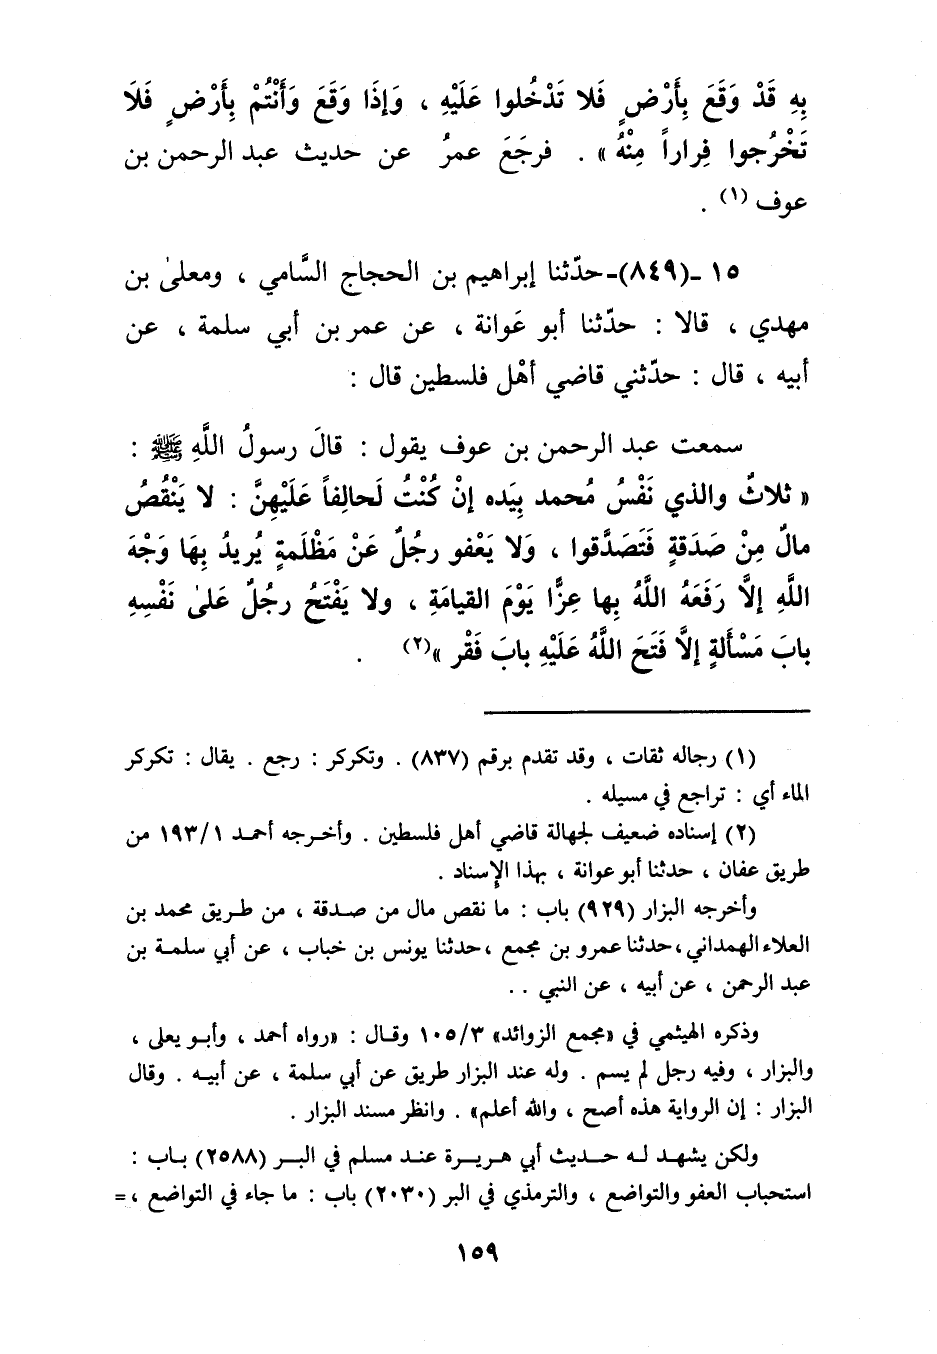 بِهِ قَدْ وَقَعَ بِأَرْضٍ فَلا تَدْخُلوا عَلَيْهِ ، وَإِذَا وَقَعَ وَأَنْتُمْ بِأَرْضٍ فَلَا
تَخْرُجوا فِراراً مِنْهُ » . فرجَعَ عمرُ عن حديث عبد الرحمن بن
عوف (١) .
١٥ ـ(٨٤٩)ـ حدّثنا إبراهيم بن الحجاج السَّامي ، ومعلىٰ بن
مهدي ، قالا : حدّثنا أبو عَوانة ، عن عمر بن أبي سلمة ، عن
أبيه ، قال : حدّثني قاضي أهْل فلسطين قال :
سمعت عبد الرحمن بن عوف يقول : قالَ رسولُ اللَّهِ ﷺ :
« ثلاثٌ والذي نَفْسُ مُحمد بِيَده إنْ كُنْتُ لَحالِفاً عَلَيْهِنَّ : لا يَنْقُصُ
مالٌ مِنْ صَدَقةٍ فَتَصَدَّقوا ، وَلا يَعْفو رجُلٌ عَنْ مَظْلَمةٍ يُريدُ بِهَا وَجْهَ
اللَّهِ إلَّا رَفَعَهُ اللَّهُ بِها عِزًّا يَوْمَ القيامَةِ ، ولا يَفْتَحُ رجُلٌ عَلىٰ نَفْسِهِ
بابَ مَسْأَلةٍ إلَّا فَتَحَ اللَّهُ عَلَيْهِ بابَ فَقْر »(٢) .
(١) رجاله ثقات ، وقد تقدم برقم (٨٣٧) . وتكركر : رجع . يقال : تكركر
الماء أي : تراجع في مسيله .
(٢) إسناده ضعيف لجهالة قاضي أهل فلسطين . وأخرجه أحمد ١٩٣/١ من
طريق عفان ، حدثنا أبو عوانة ، بهذا الإسناد .
وأخرجه البزار (٩٢٩) باب : ما نقص مال من صدقة ، من طريق محمد بن
العلاء الهمداني ، حدثنا عمرو بن مجمع ، حدثنا يونس بن خباب ، عن أبي سلمة بن
عبد الرحمن ، عن أبيه ، عن النبي . .
وذكره الهيثمي في «مجمع الزوائد» ١٠٥/٣ وقال : «رواه أحمد ، وأبو يعلى ،
والبزار ، وفيه رجل لم يسم . وله عند البزار طريق عن أبي سلمة ، عن أبيه . وقال
البزار : إن الرواية هذه أصح ، والله أعلم» . وانظر مسند البزار .
ولكن يشهد له حديث أبي هريرة عند مسلم في البر (٢٥٨٨) باب :
استحباب العفو والتواضع ، والترمذي في البر (٢٠٣٠) باب : ما جاء في التواضع ، =
١٥٩